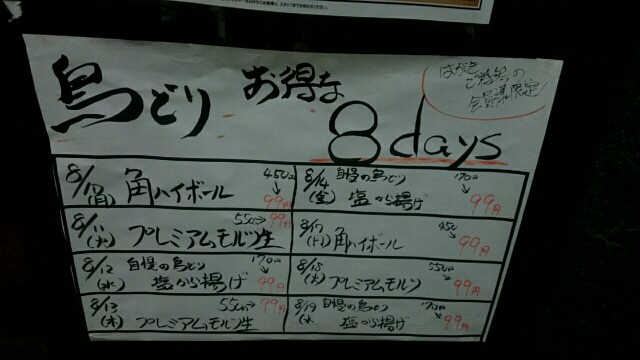 鳥どり お得な 8days
はがきご持参の
会員様限定!
8/10(月) 角ハイボール 450円→99円
8/11(火) プレミアムモルツ生 550円→99円
8/12(水) 自慢の鳥どり 塩から揚げ 170円→99円
8/13(木) プレミアムモルツ生 550→99円
8/14(金) 自慢の鳥どり 塩から揚げ 170円→99円
8/17(月) 角ハイボール 450→99円
8/18(火) プレミアムモルツ 550円→99円
8/19(水 自慢の鳥どり 塩から揚げ 170円→99円